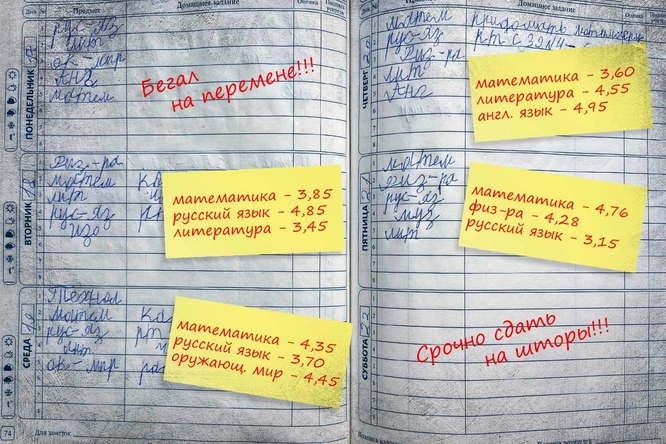 Предмет
Домашнее задание
Оценка
ПОНЕДЕЛЬНИК
рус-яз
лит
ок-мир
Анг
матем
Бегал
на перемене!!!
ВТОРНИК
Физ-ра
матем
лит
рус-яз
изо
математика - 3,85
русский язык - 4,85
литература - 3,45
СРЕДА
Технол
матем
рус-яз
лит
ок-мир
математика - 4,35
русский язык - 3,70
оружающ. мир - 4,45
74
Для заметок
Предмет
Домашнее задание
Оценка
ЧЕТВЕРГ
матем
рус-яз
Физ-ра
лит
Анг
математика - 3,60
литература - 4,55
англ. язык - 4,95
ПЯТНИЦА
матем
физ-ра
рус-яз
муз
лит
математика - 4,76
физ-ра - 4,28
русский язык - 3,15
СУББОТА
Срочно сдать
на шторы!!!